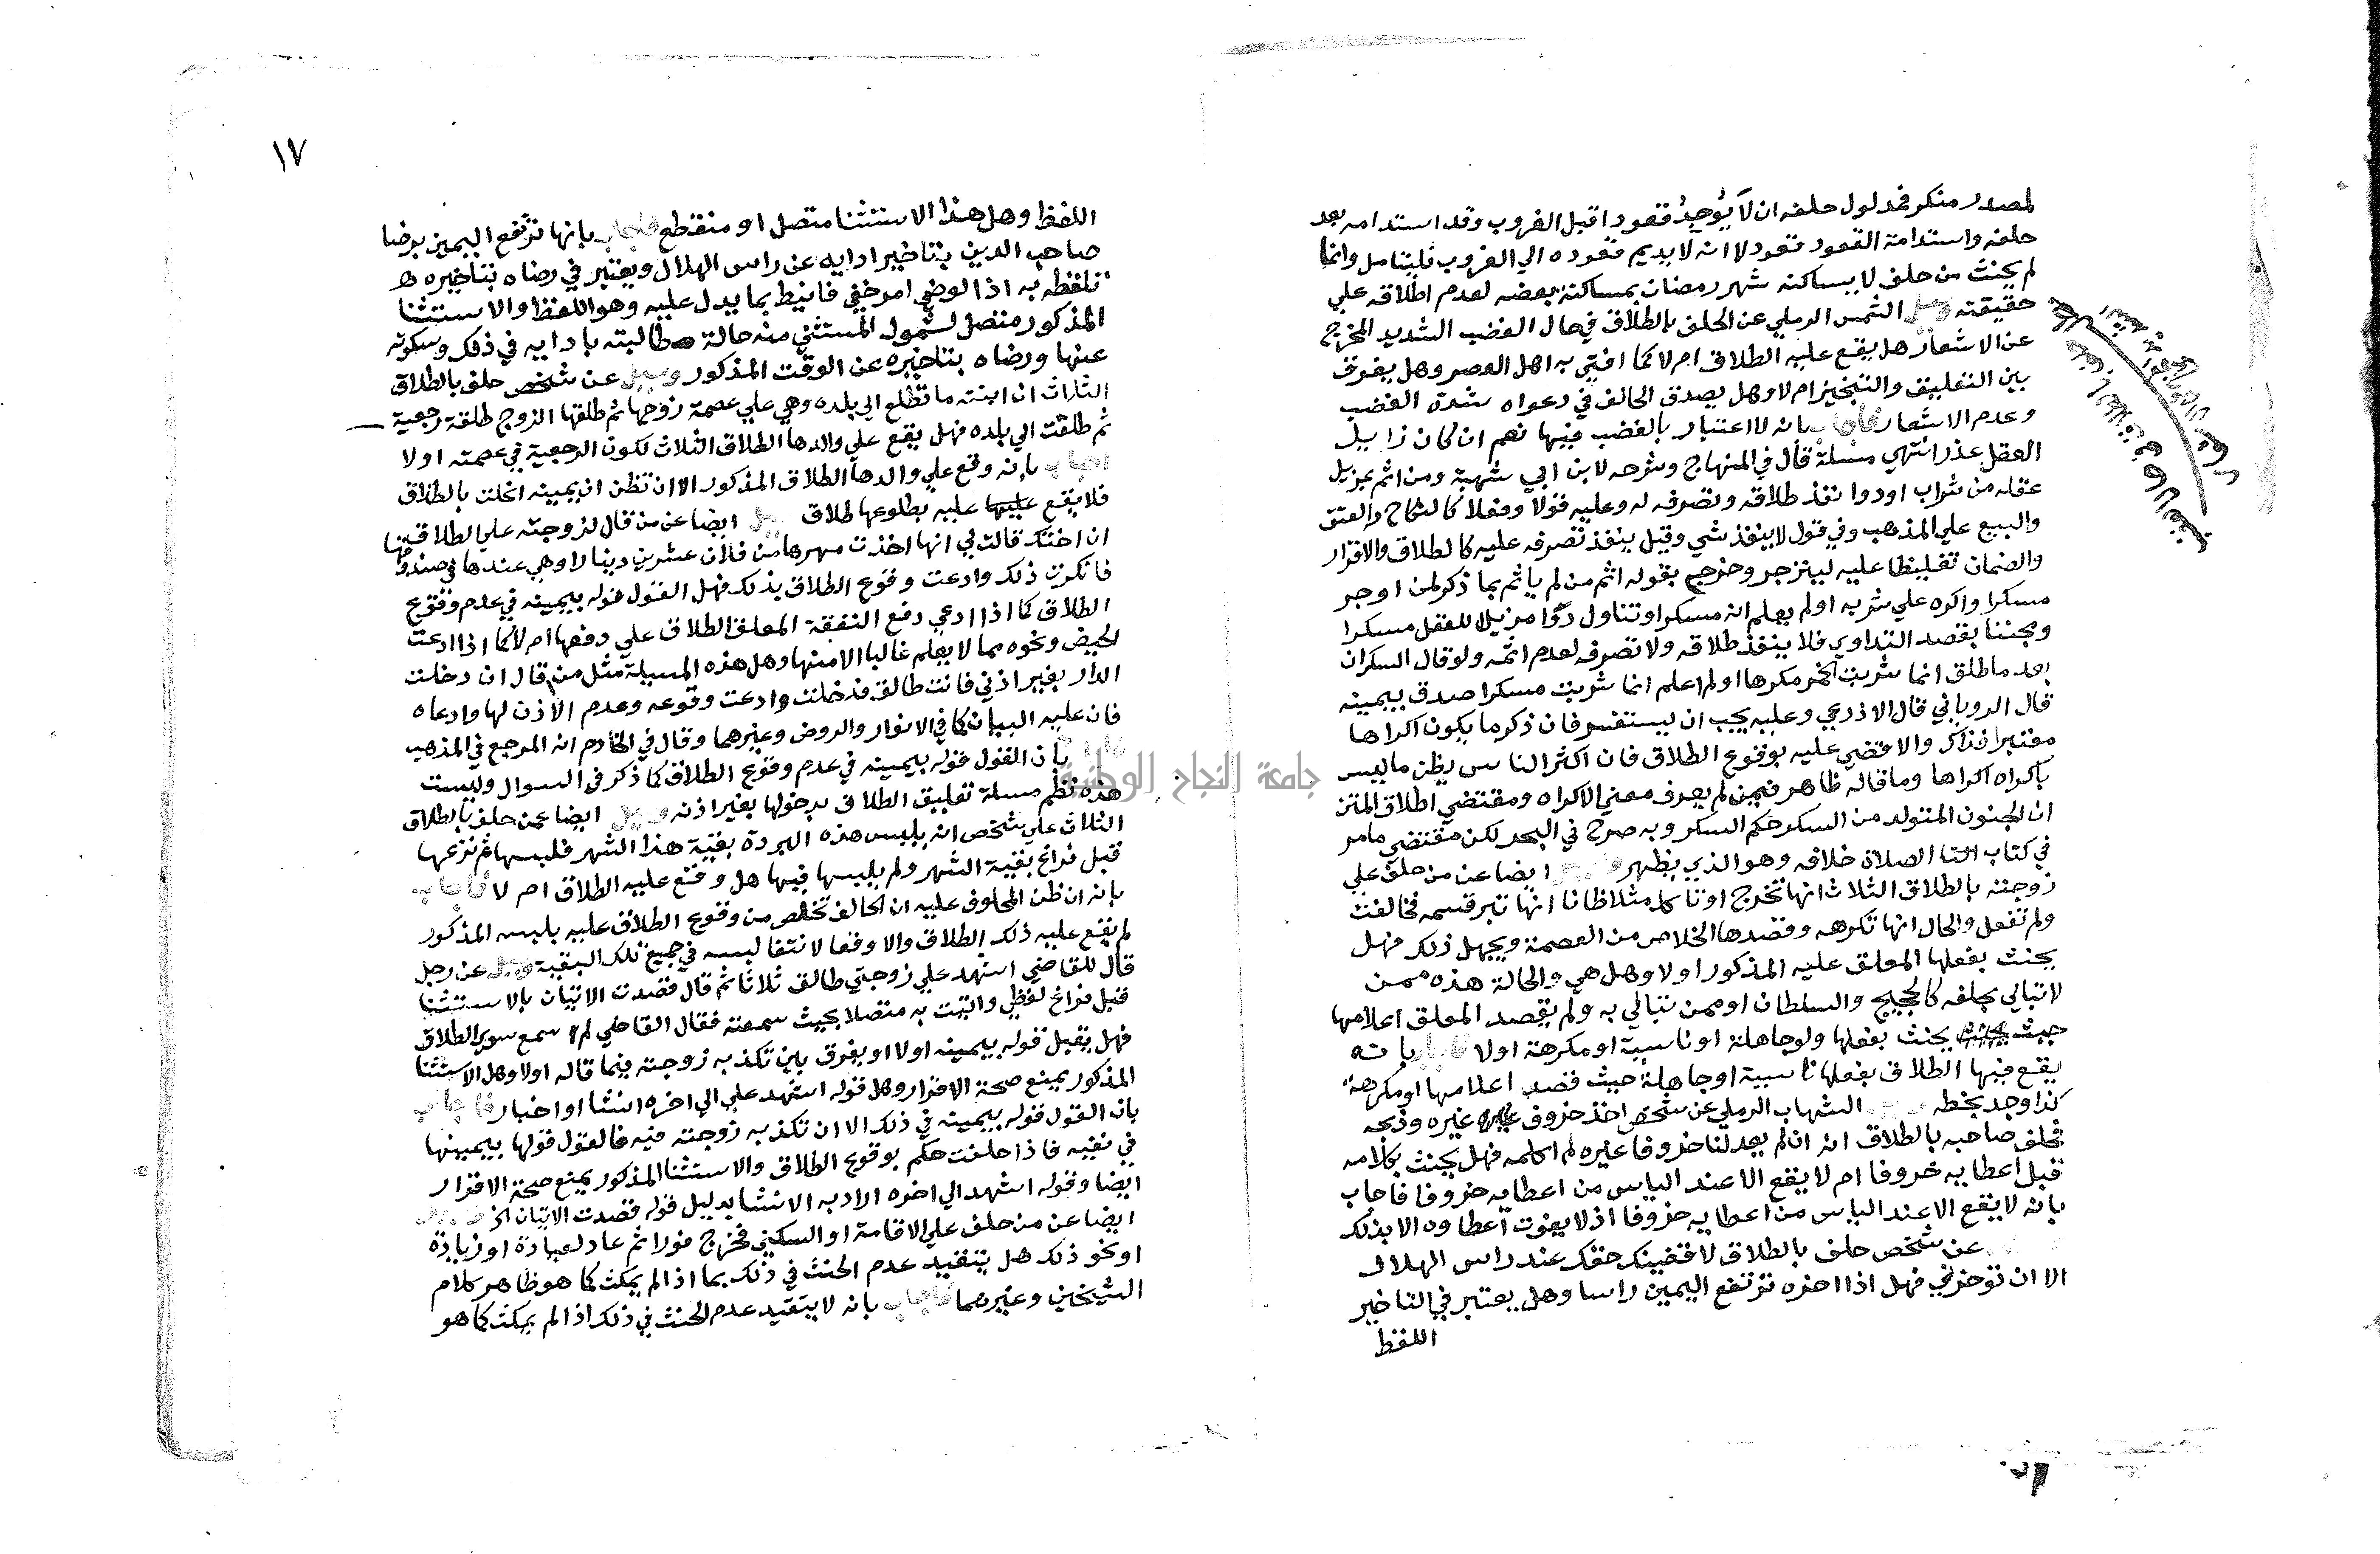 لمصدر منكر فمدلول حلفه ان لا يُوجِدُ قعودا قبل الغروب وقد استدامه بعد
حلفه واستدامة القعود قعود لا انه لا يديم قعوده الي الغروب فليتامل وانما
لم يحنث من حلف لا يساكنه شهر رمضان بمساكنة بعضه لعدم اطلاقه علي
حقيقته وسيل الشمس الرملي عن الحلف بالطلاق في حال الغضب الشديد المخرج
عن الاشعار هل يقع عليه الطلاق ام لا كما افتي به اهل العصر وهل يفرق
بين التعليق والتنجيز ام لا وهل يصدق الحالف في دعواه شدة الغضب
وعدم الاشعار فاجاب بانه لا اعتبار بالغضب فيها نعم ان كان زايل
العقل عذر انتهي مسئلة قال في المنهاج وشرحه لابن ابي شهبة ومن اثم بمزيل
عقله من شراب او دوا نفذ طلاقه وتصرفه له وعليه قولا وفعلا كالنكاح والعتق
والبيع علي المذهب وفي قول لا ينفذ شي وقيل ينفذ تصرفه عليه كالطلاق والاقرار
والضمان تغليظا عليه لينزجر وخرج بقوله اثم من لم ياثم بما ذكر لمن اوجر
مسكرا واكره علي شربه او لم يعلم انه مسكر او تناول دوًا مزيلا للعقل مسكرا
ومجننا بقصد التداوي فلا ينفذ طلاقه ولا تصرفه لعدم اثمه ولو قال السكران
بعد ما طلق انما شربت الخمر مكرها او لم اعلم انما شربت مسكرا صدق بيمينه
قال الروياني قال الاذرعي وعليه يجب ان يستفسر فان ذكر ما يكون اكراها
معتبرا فذاك والا قضي عليه بوقوع الطلاق فان اكثر الناس يظن ما ليس
باكراه اكراها وما قاله ظاهر فيمن لم يعرف معني الاكراه ومقتضي اطلاق المتن
ان الجنون المتولد من السكر حكم السكر وبه صرح في البحر لكن مقتضي ما مر
في كتاب التا الصلاة خلافه وهو الذي يظهر وسيل ايضا عن من حلف علي
زوجته بالطلاق الثلاث انها تخرج او تاكل مثلا ظانا انها تبر قسمه فخالفت
ولم تفعل والحال انها تكرهه وقصدها الخلاص من العصمة ويجهل ذلك فهل
يحنث بفعلها المعلق عليه المذكور اولا وهل هي والحالة هذه ممن
لا تبالي بحلفه كالحجيج والسلطان او ممن تبالي به ولم يقصد المعلق اعلامها
حيث يحنث بفعلها ولو جاهلة او ناسية او مكرهة اولا فاجاب بانه
يقع فيها الطلاق بفعلها ناسية او جاهلة حيث قصد اعلامها او مكرهة
كذا وجد بخطه الشهاب الرملي عن شخص اخذ خروف غيره وذبحه
فحلف صاحبه بالطلاق انه ان لم يعد لنا خروفا غيره لم اكلمه فهل يحنث بكلامه
قبل اعطايه خروفا ام لا يقع الا عند الياس من اعطايه خروفا فاجاب
بانه لا يقع الا عند الياس من اعطايه خروفا اذ لا يفوت اعطاوه الا بذلك
عن شخص حلف بالطلاق لاقضينك حقك عند راس الهلال
الا ان توخرني فهل اذا اخره ترتفع اليمين راسا وهل يعتبر في التاخير
اللفظ
١٧
اللفظ وهل هذا الاستثنا متصل او منقطع فاجاب بانها ترتفع اليمين برضا
صاحب الدين بتاخير ادايه عن راس الهلال ويعتبر في رضاه بتاخيره
تلفظه به اذ الرضي امر خفي فانيط بما يدل عليه وهو اللفظ والاستثنا
المذكور متصل لشمول المستثني منه حالة مطالبته بادايه في ذلك وسكوته
عنها ورضاه بتاخيره عن الوقت المذكور وسيل عن شخص حلف بالطلاق
الثلاث ان ابنته ما تطلع الي بلده وهي علي عصمة زوجها ثم طلقها الزوج طلقة رجعية
ثم طلعت الي بلده فهل يقع علي والدها الطلاق الثلاث لكون الرجعية في عصمته اولا
اجاب بانه وقع علي والدها الطلاق المذكور الا ان تظن ان يمينه انحلت بالطلاق
فلا يقع عليها عليه بطلوعها طلاق وسيل ايضا عن من قال لزوجته علي الطلاق
ان اختك قالت لي انها اخذت مهرها من فلان عشرين دينارا وهي عندها في صندوقها
فانكرت ذلك وادعت وقوع الطلاق بذلك فهل القول قوله بيمينه في عدم وقوع
الطلاق كما اذا ادعي دفع النفقة المعلق الطلاق علي دفعها ام لا كما اذا ادعت
الحيض ونحوه مما لا يعلم غالبا الا منها وهل هذه المسيلة مثل من قال ان دخلت
الدار بغير اذني فانت طالق فدخلت وادعت وقوعه وعدم الاذن لها وادعاه
فان عليه البيان كما في الانوار والروض وغيرهما وقال في الخادم انه المرجع في المذهب
فاجاب بان القول قوله بيمينه في عدم وقوع الطلاق كما ذكر في السوال وليست
هذه نظير مسلة تعليق الطلاق بدخولها بغير اذنه وسيل ايضا عمن حلف بالطلاق
الثلاث علي شخص انه يلبس هذه البردة بقية هذا الشهر فلبسها ثم نزعها
قبل فراغ بقية الشهر ولم يلبسها فيها هل وقع عليه الطلاق ام لا فاجاب
بانه ان ظن المحلوف عليه ان الحالف تخلص من وقوع الطلاق عليه بلبسه المذكور
لم يقع عليه ذلك الطلاق والا وقعا لانتفا لبسه في جميع تلك البقية وسيل عن رجل
قال للقاضي اشهد علي زوجتي طالق ثلاثا ثم قال قصدت الاتيان بالاستثنا
قبل فراغ لفظي واتيت به متصلا بحيث سمعته فقال القاضي لم اسمع سوي الطلاق
فهل يقبل قوله بيمينه اولا او يفرق بين تكذبه زوجته فيما قاله اولا وهل الاستثنا
المذكور يمنع صحة الاقرار وهل قوله اشهد علي الي اخره انشا او اخبار فاجاب
بان القول قوله بيمينه في ذلك الا ان تكذبه زوجته فيه فالقول قولها بيمينها
في نفيه فاذا حلفت حكم بوقوع الطلاق والاستثنا المذكور يمنع صحة الاقرار
ايضا وقوله اشهد الي اخره اراد به الانشا بدليل قوله قصدت الاتيان الخ
ايضا عن من حلف علي الاقامة او السكني فخرج فورا ثم عاد لعيادة او زيارة
او نحو ذلك هل يتقيد عدم الحنث في ذلك بما اذا لم يمكث كما هو ظاهر كلام
الشيخين وغيرهما فاجاب بانه لا يتقيد عدم الحنث في ذلك اذا لم يمكث كما هو
جامعة النجاح الوطنية